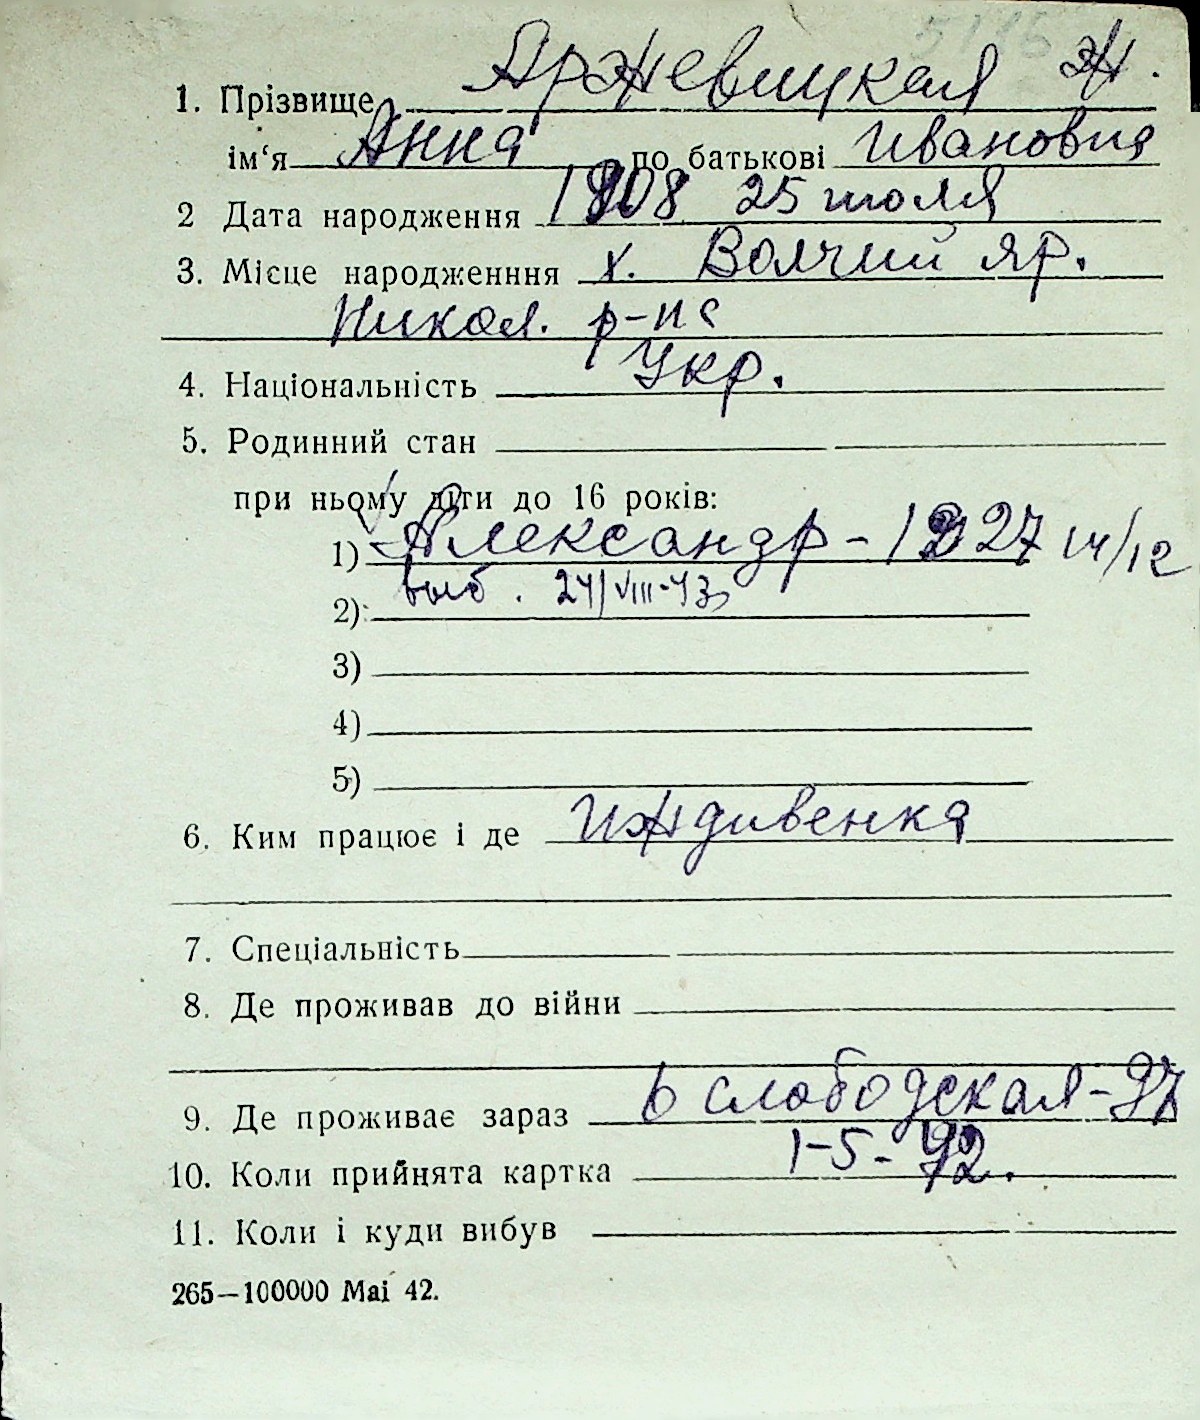 1. Прізвище Аржевицкая Ж.
ім‘я Анна по батькові Ивановна
2 Дата народження 1908 25 июля
3. Місце народженння х. Волчий яр.
Никол. р-на
4. Національність Укр.
5. Родинний стан
при ньому діти до 16 років:
1) Александр - 1927 14/12
выб. 24/VIII-43
2)
3)
4)
5)
6. Ким працює і де Иждивенка
7. Спеціальність
8. Де проживав до війни
9. Де проживає зараз слободская-97
10. Коли прийнята картка 1-5-42.
11. Коли і куди вибув
265—100000 Маі 42.